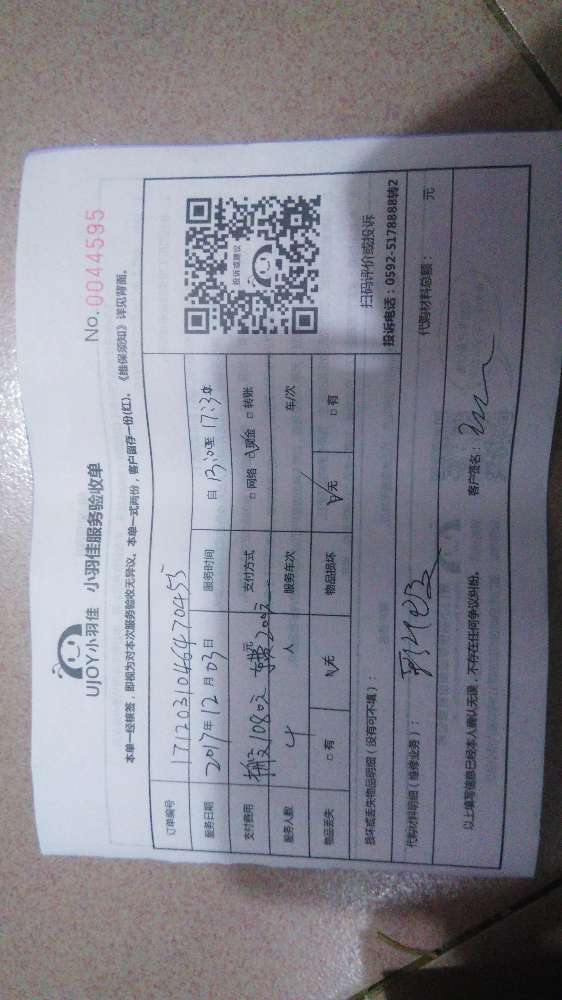 UJOY小羽佳 小羽佳服务验收单
No. 0044595
本单一经核签，即视为对本次服务验收无异议。本单一式两份，客户留存一份(红)。《维保须知》详见背面。
订单编号 1712031046470455
服务日期 2017年12月03日 服务时间 自 13:00至 17:30
支付费用 1080 元 支付方式 □ 网络 ☑ 现金 □ 转账
服务人数 4 人 服务车次 车/次
物品丢失 □ 有 ☑ 无 物品损坏 ☑ 无 □ 有
投诉或建议
扫码评价或投诉
投诉电话：0592-5178888转2
损坏或丢失物品明细（没有可不填）：
代购材料明细（维修业务）：
代购材料总额： 元
以上填写信息已经本人确认无误，不存在任何争议纠纷。 客户签名：